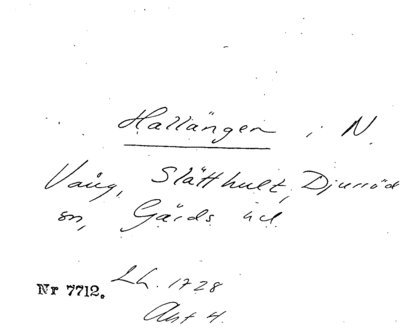 Hallängen i N
Vång, Slätthult, Djurröd
sn, Gärds hd
Nr 7712. Lh. 1728
Akt 4.